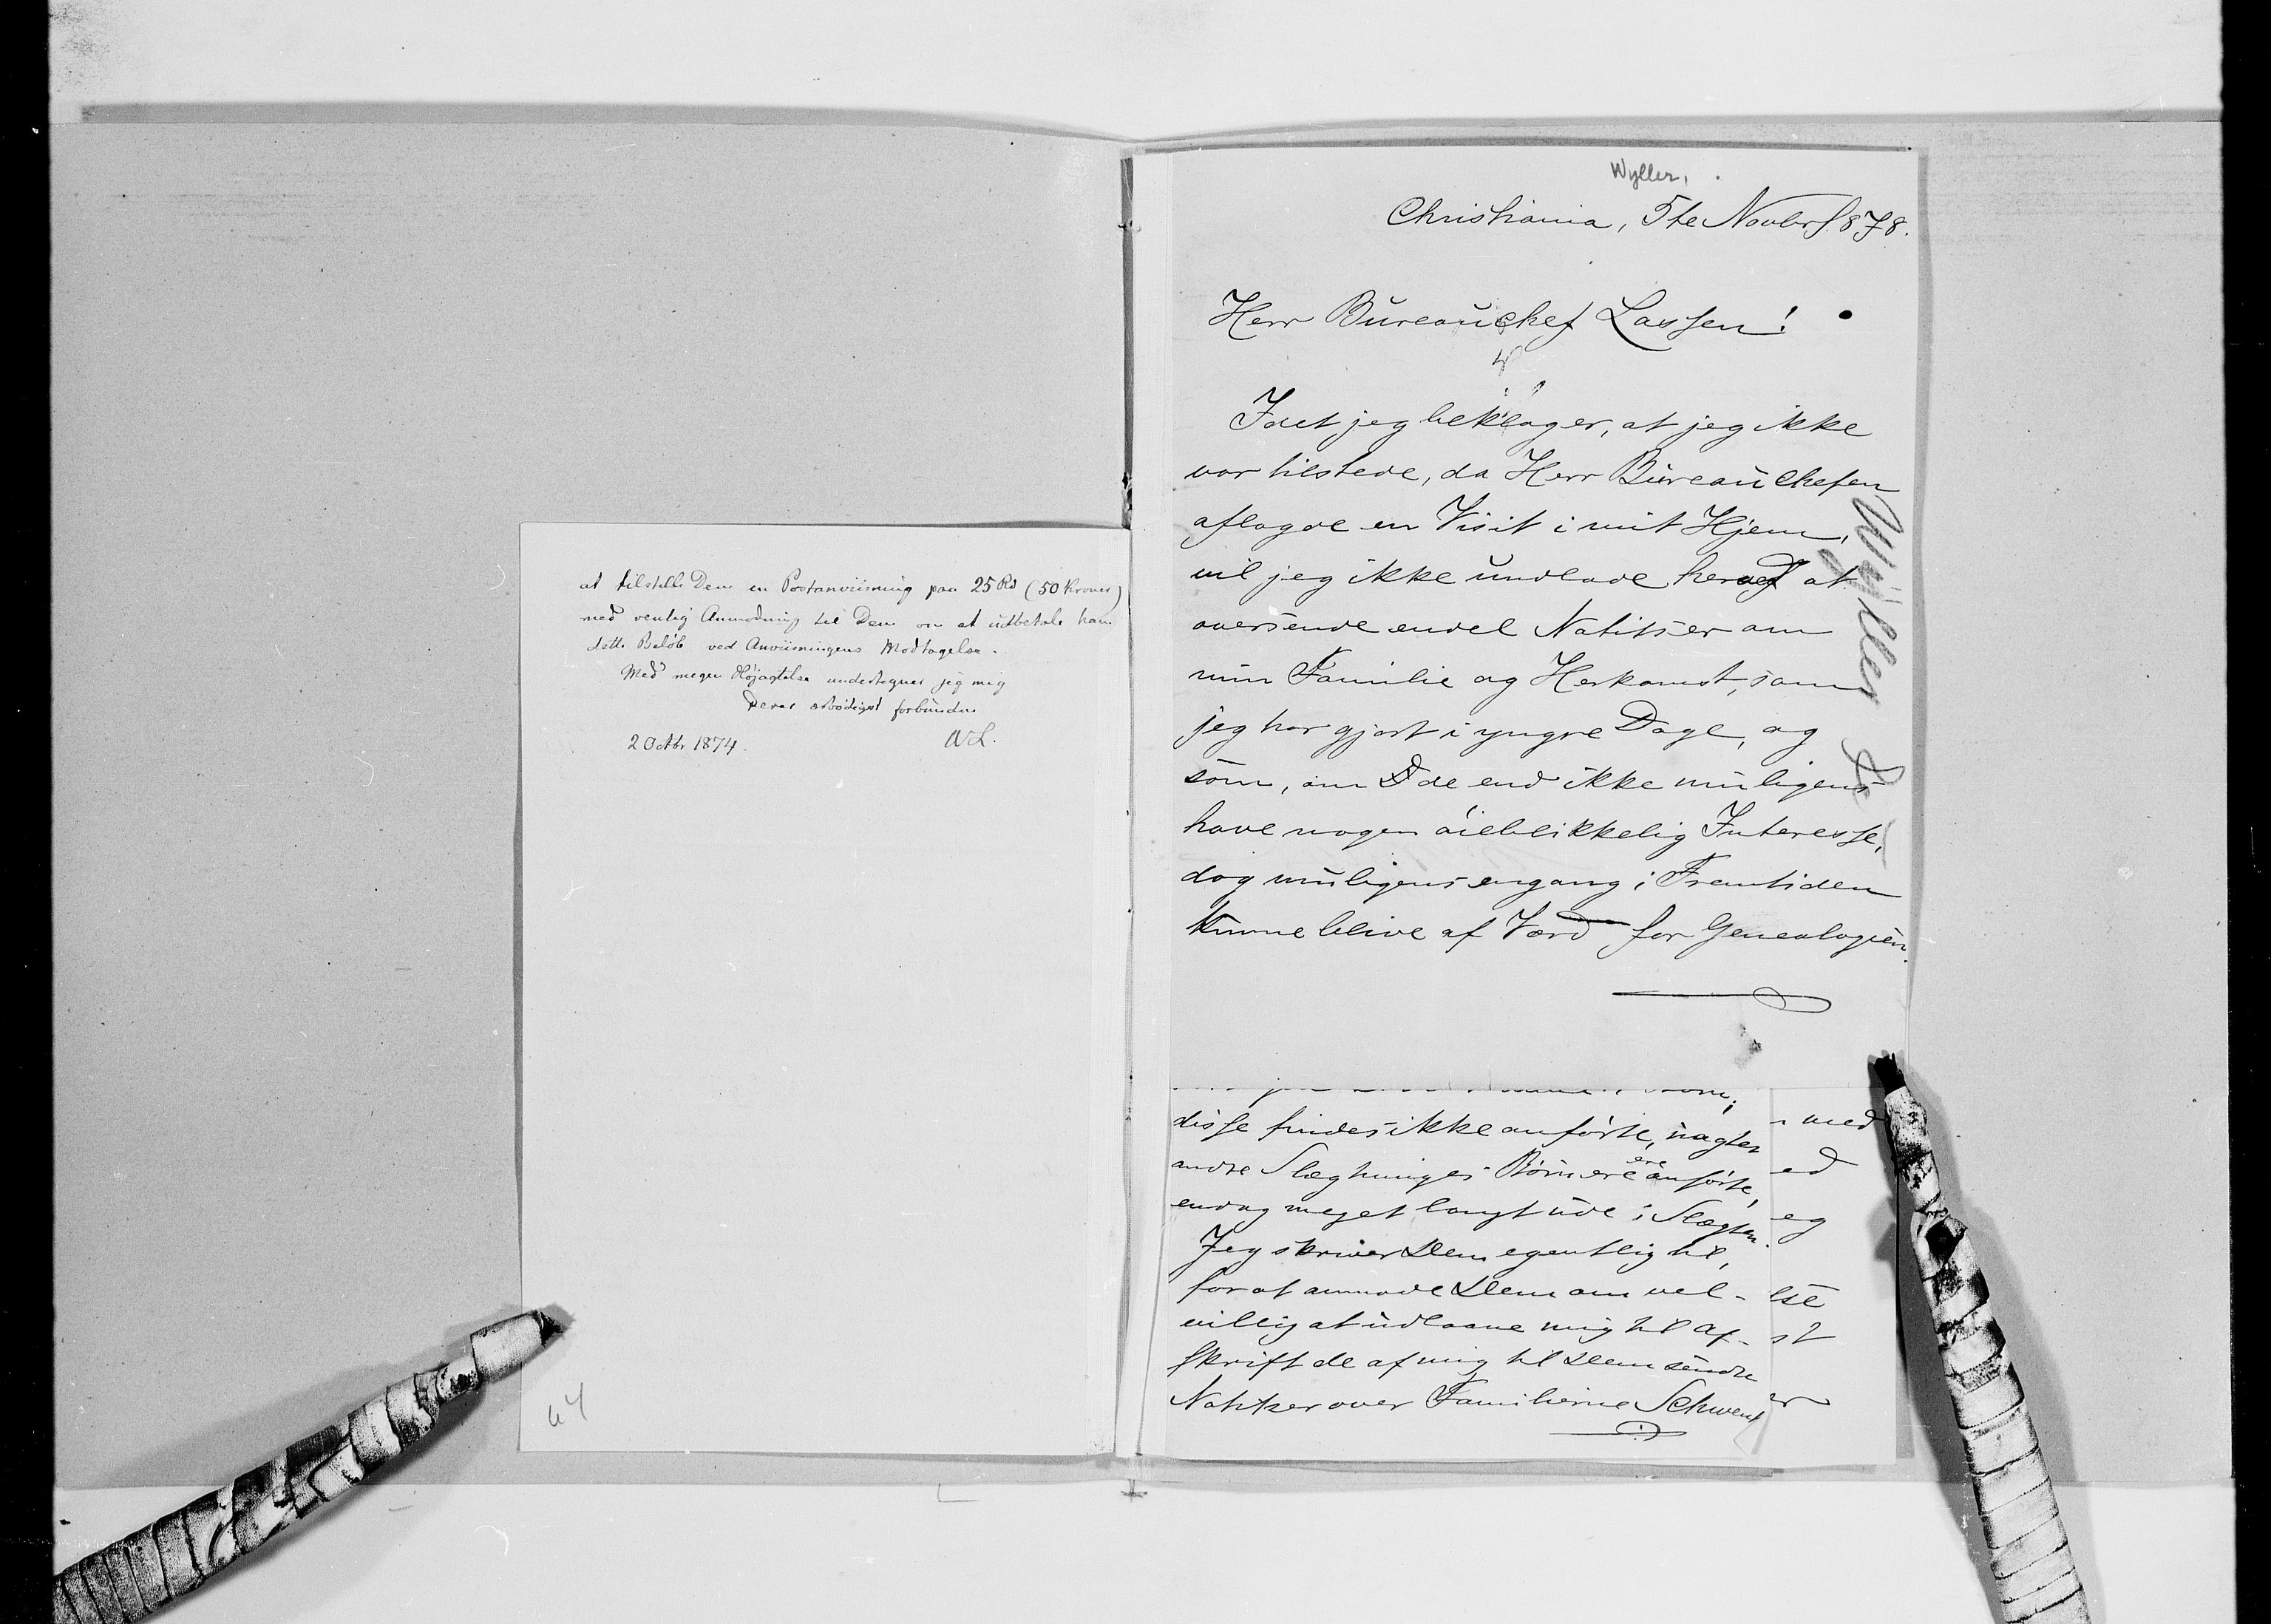 at tilstille Dem en Postanviisning paa 25 Rd (50 Kroner)
med venlig Anmodning til Dem om at udbetale ham
dette Beløb ved Anviisningens Modtagelse.
Med megen Højagtelse undertegner jeg mig
Deres ærbødigst forbundne
2 Octbr 1874. A.L.
64
Wyller,
Christiania, 5te Novbr 1878.
Herr Bureauchef Lassen!
Idet jeg beklager, at jeg ikke
var tilstede, da Herr Bureauchefen
aflagde en Visit i mit Hjem,
vil jeg ikke undlade herved at
oversende endel Notitser om
min Familie og Herkomst, som
jeg har gjort i yngre Dage, og
som, om de end ikke muligens
have nogen öieblikkelig Interesse,
dog muligens engang i Fremtiden
kunne blive af Værd for Genealogien.
Wyller
disse findes ikke anførte, uagtet
andre Slægtninges Børn ere anførte,
endog meget langt ude i Slægten.
Jeg skriver Dem egentlig til,
for at anmode Dem om vel-
villig at udlaane mig til Af-
skrift de af mig til Dem sendte
Notitser over Familierne Schwenz
med
ed
eg
lse
st
er